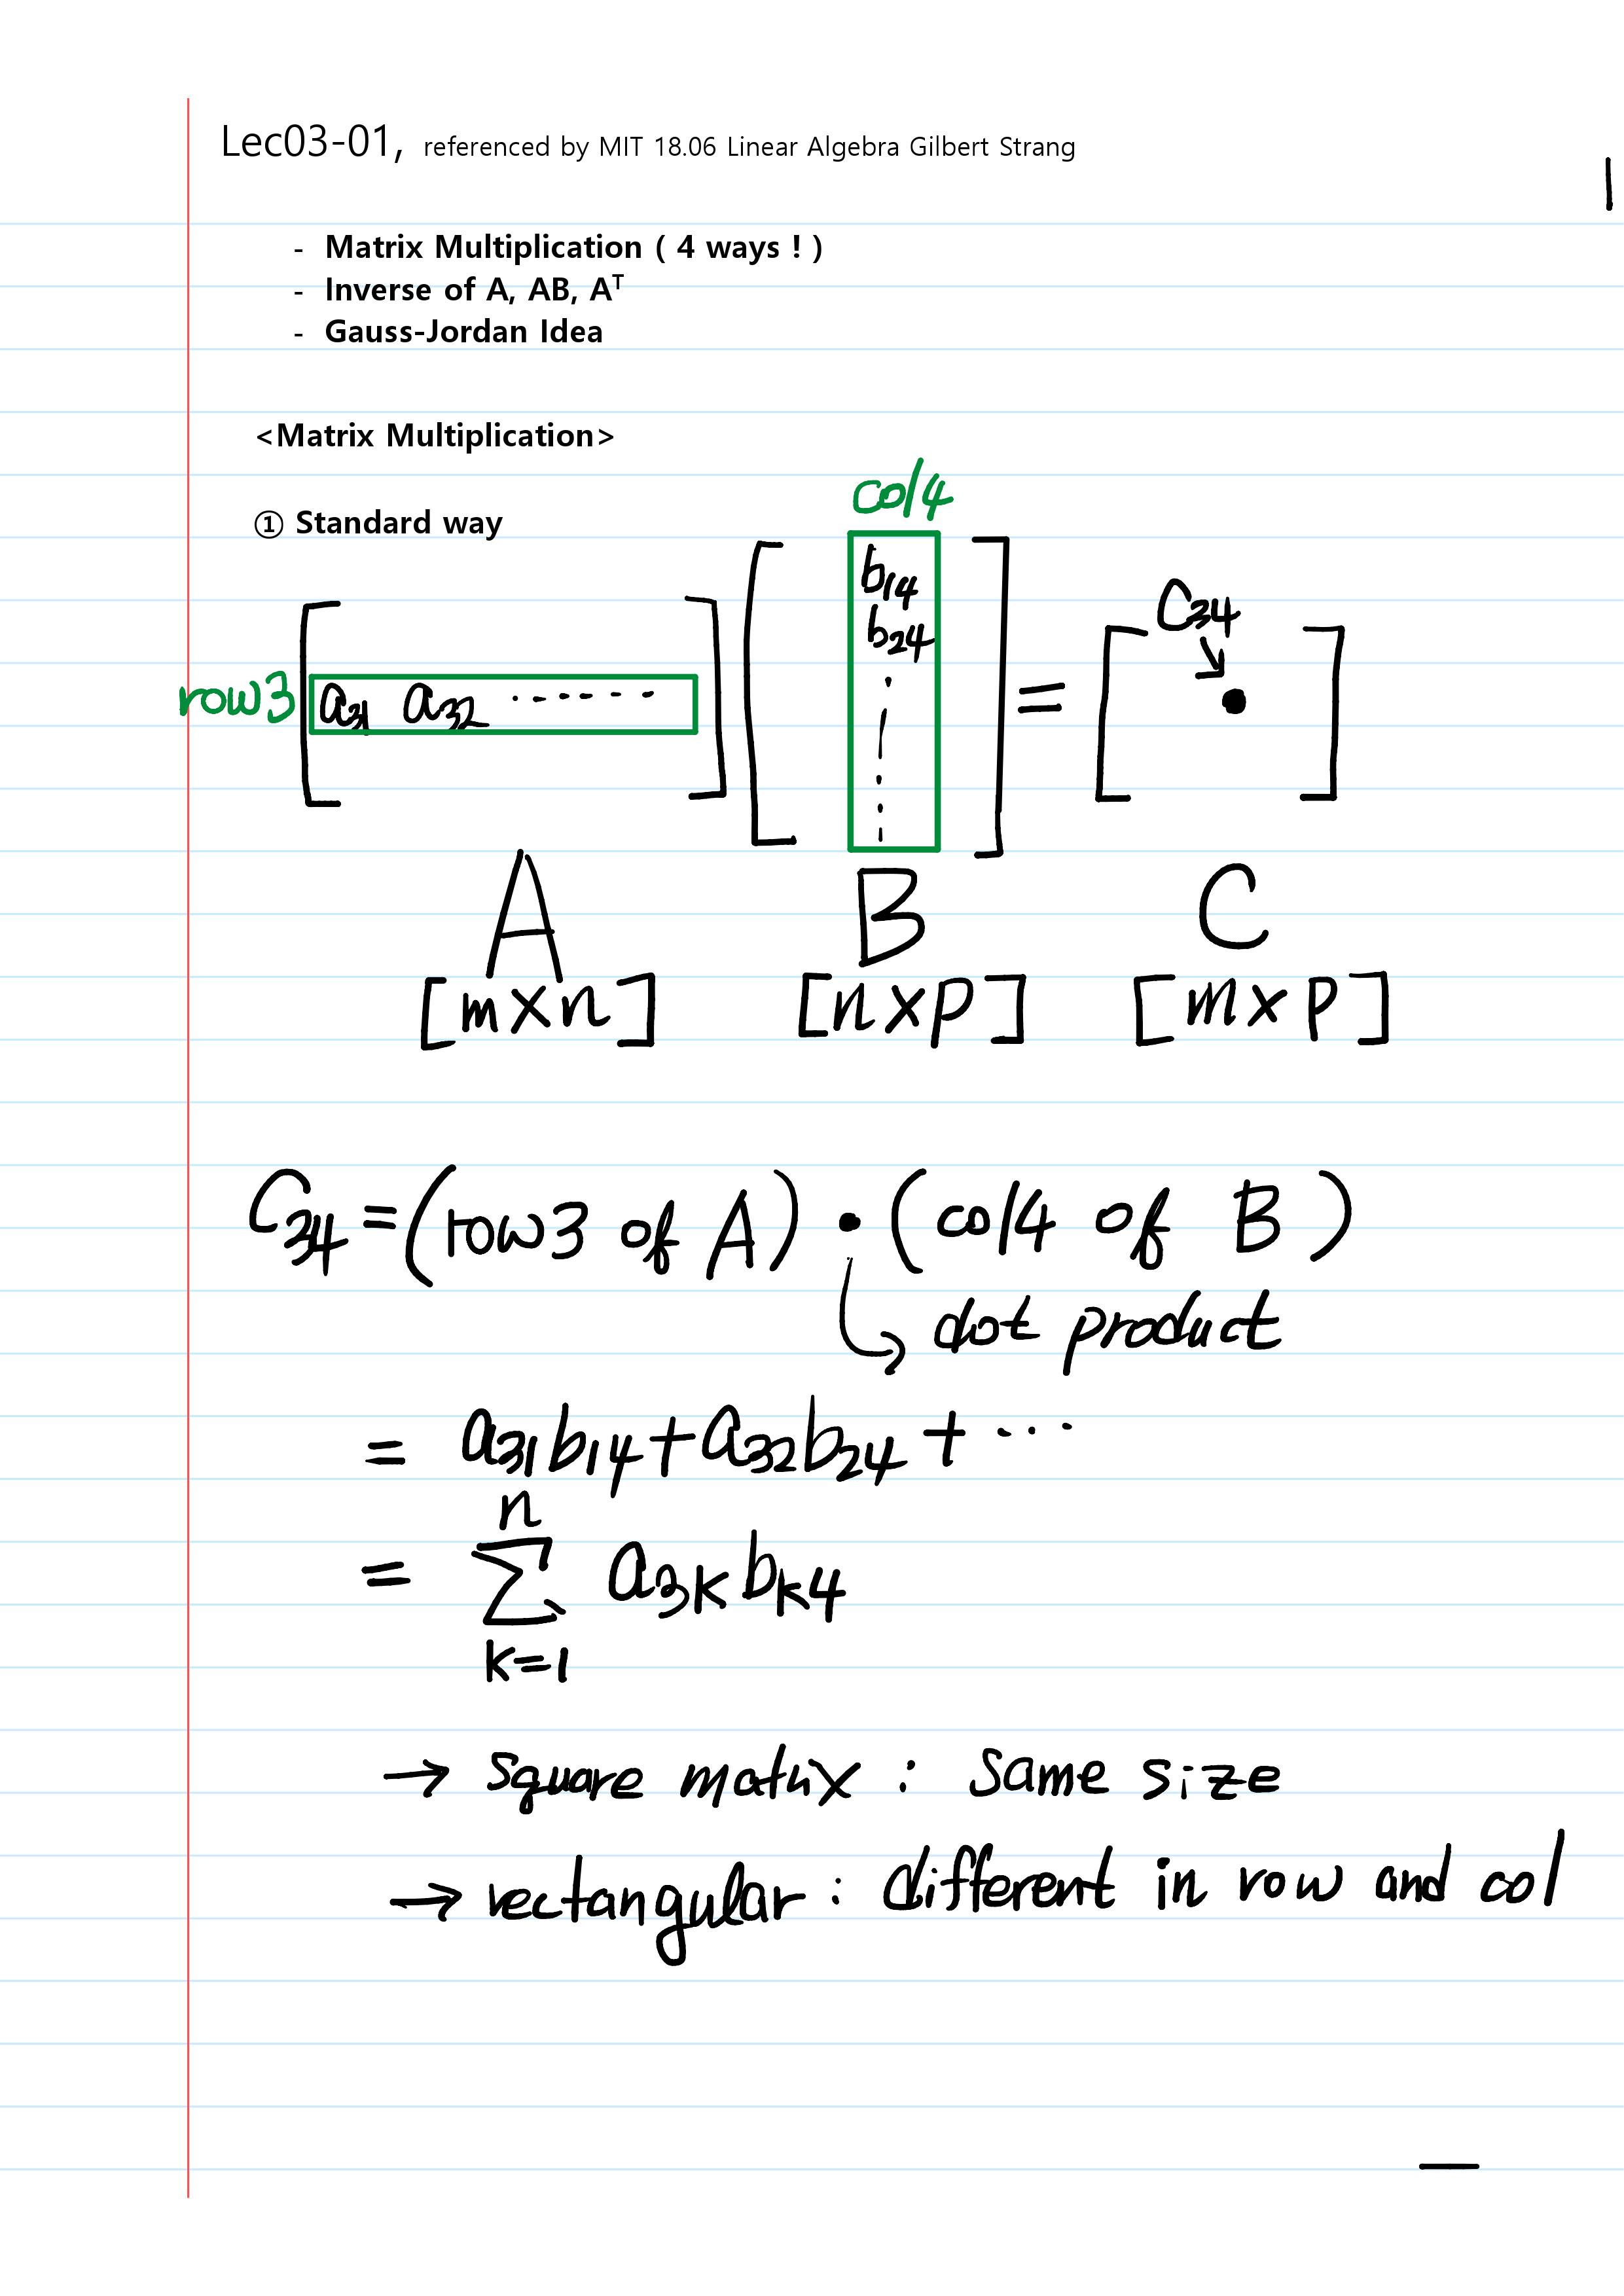 Lec03-01, referenced by MIT 18.06 Linear Algebra Gilbert Strang
- Matrix Multiplication ( 4 ways ! )
- Inverse of A, AB, Aᵀ
- Gauss-Jordan Idea
<Matrix Multiplication>
① Standard way
col4
b₁₄
b₂₄
C₃₄
row3 [ a₃₁ a₃₂ ······ ] [ ] = [ ]
A B C
[m×n] [n×p] [m×p]
C₃₄ = (row3 of A) • (col4 of B)
dot product
= a₃₁b₁₄ + a₃₂b₂₄ + ···
n
= ∑ a₃ₖ bₖ₄
k=1
→ square matrix : same size
→ rectangular : different in row and col